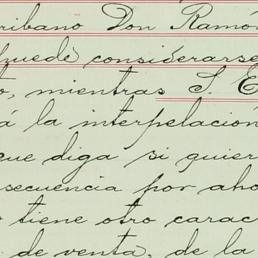 ribano Don Ramó
puede considerarse
to, mientras S. E
á la interpelación
que diga si quier
secuencia por aho
tiene otro carac
de venta, de la